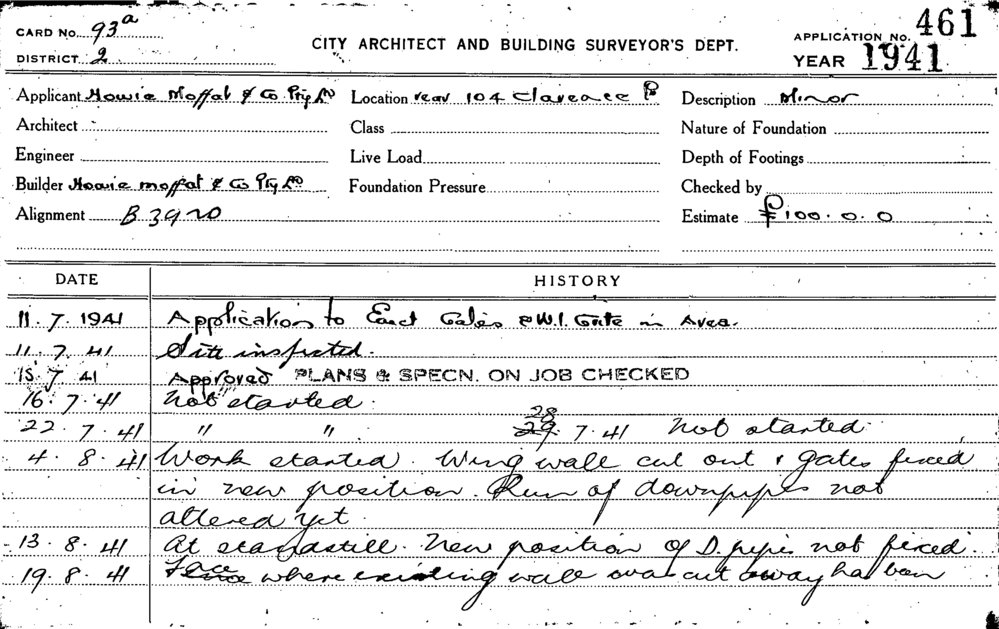 CARD No. 93a
DISTRICT 2
CITY ARCHITECT AND BUILDING SURVEYOR'S DEPT.
APPLICATION No. 461
YEAR 1941
Applicant Howie Moffat & Co Pty Ld Location rear 104 Clarence Description Minor
Architect Class Nature of Foundation
Engineer Live Load Depth of Footings
Builder Howie Moffat & Co Pty Ld Foundation Pressure Checked by
Alignment B 3920 Estimate £100.0.0
DATE HISTORY
11.7.1941 Application to Erect Gates & W.I. Grite in Area.
11.7.41 Site inspected.
15.7.41 Approved PLANS & SPECN. ON JOB CHECKED
16.7.41 Not started.
28
22.7.41 " " 29.7.41 Not started
4.8.41 Work started. Wing wall cut out & gates fixed
in new position. Run of downpipes not
altered yet.
13.8.41 At standstill. New position of D. pipes not fixed.
19.8.41 Face where existing wall was cut away has been